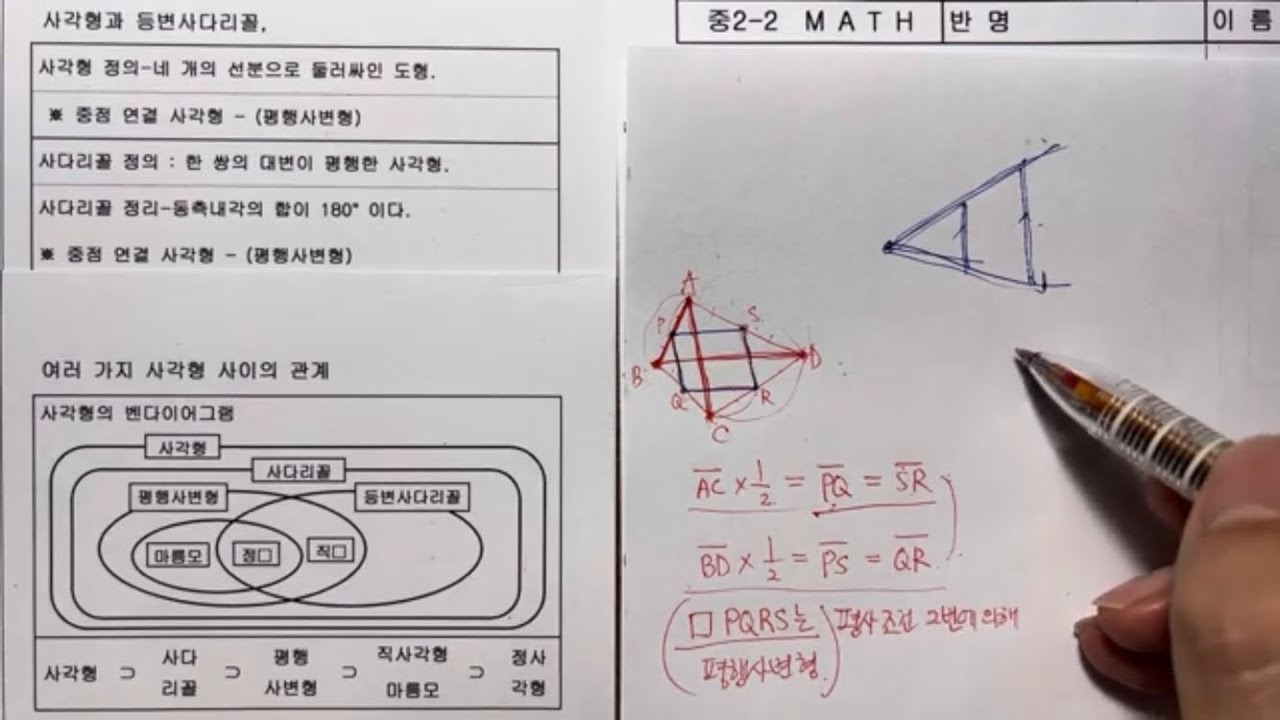 사각형과 등변사다리꼴.
사각형 정의-네 개의 선분으로 둘러싸인 도형.
※ 중점 연결 사각형 - (평행사변형)
사다리꼴 정의 : 한 쌍의 대변이 평행한 사각형.
사다리꼴 정리-동측내각의 합이 180° 이다.
※ 중점 연결 사각형 - (평행사변형)
여러 가지 사각형 사이의 관계
사각형의 벤다이어그램
사각형
사다리꼴
평행사변형 등변사다리꼴
마름모 정□ 직□
사각형 ⊃ 사다리꼴 ⊃ 평행사변형 ⊃ 직사각형 마름모 ⊃ 정사각형
중2-2 MATH 반 명 이 름
A
P S
B D
Q R
C
A̅C̅ × 1/2 = P̅Q̅ = S̅R̅
B̅D̅ × 1/2 = P̅S̅ = Q̅R̅
(□ PQRS는 평행사변형.) 평사 조건 2번에 의해